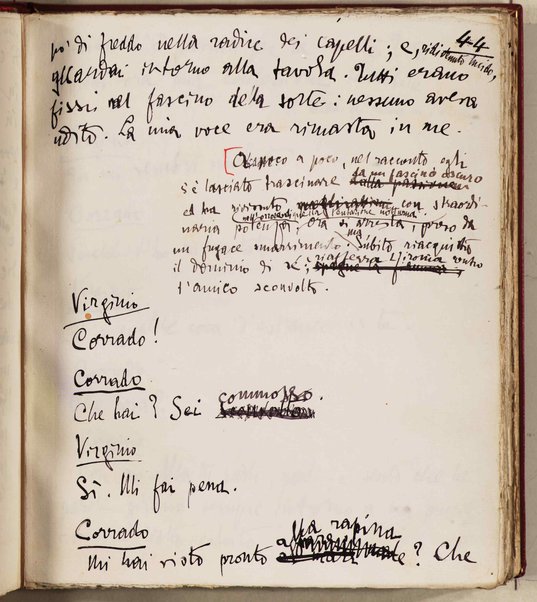 44
po' di freddo nella radice dei capelli; e, ridivenuto lucido,
guardai intorno alla tavola. Tutti erano
fissi nel fascino della sorte: nessuno aveva
udito. La mia voce era rimasta in me.
A poco a poco, nel racconto, egli
da un fascino oscuro
s'è lasciato trascinare dalla passione
ed ha rivissuto con straordi-
nell'orrore della tentazione notturna.
naria potenza, ora si arresta, preso da
ma
un fugace smarrimento. Subito riacquista
il dominio di sé; riafferra l'ironia contro
l'amico sconvolto.
Virginio
Corrado!
Corrado
commosso.
Che hai? Sei
Virginio
Sì. Mi fai pena.
Corrado
alla rapina
Mi hai visto pronto a ? Che